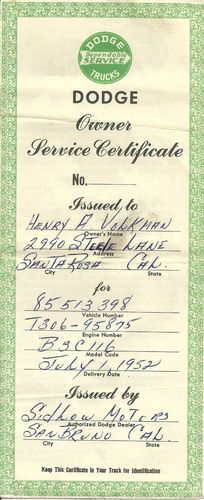 DODGE
Dependable
SERVICE
TRUCKS
DODGE
Owner
Service Certificate
No.
Issued to
HENRY A VOLKMAN
Owner's Name
2990 STEELE LANE
Address
SANTA ROSA CAL.
City State
for
85513398
Vehicle Number
T306-95875
Engine Number
B3C116
Model Code
July 1, 1952
Delivery Date
Issued by
Sidlow Moters
Authorized Dodge Dealer
SAN BRUNO CAL.
City State
Keep This Certificate in Your Truck for Identification